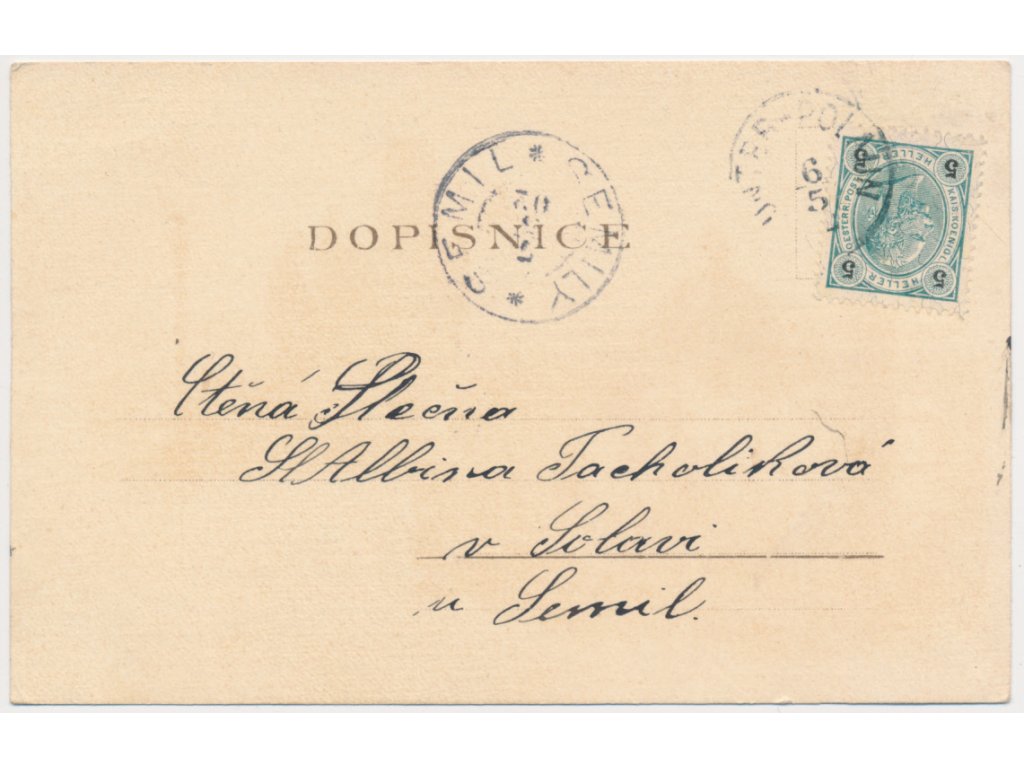 UNTER-POL
6
5
5 5
HELLER
KAIS. KOENIGL.
OESTERR. POST
HELLER
5 5
SEMIL * SEMILY *
DOPISNICE
Ctěná Slečna
Sl Albina Tacholiková
v Solavi
u Semil.